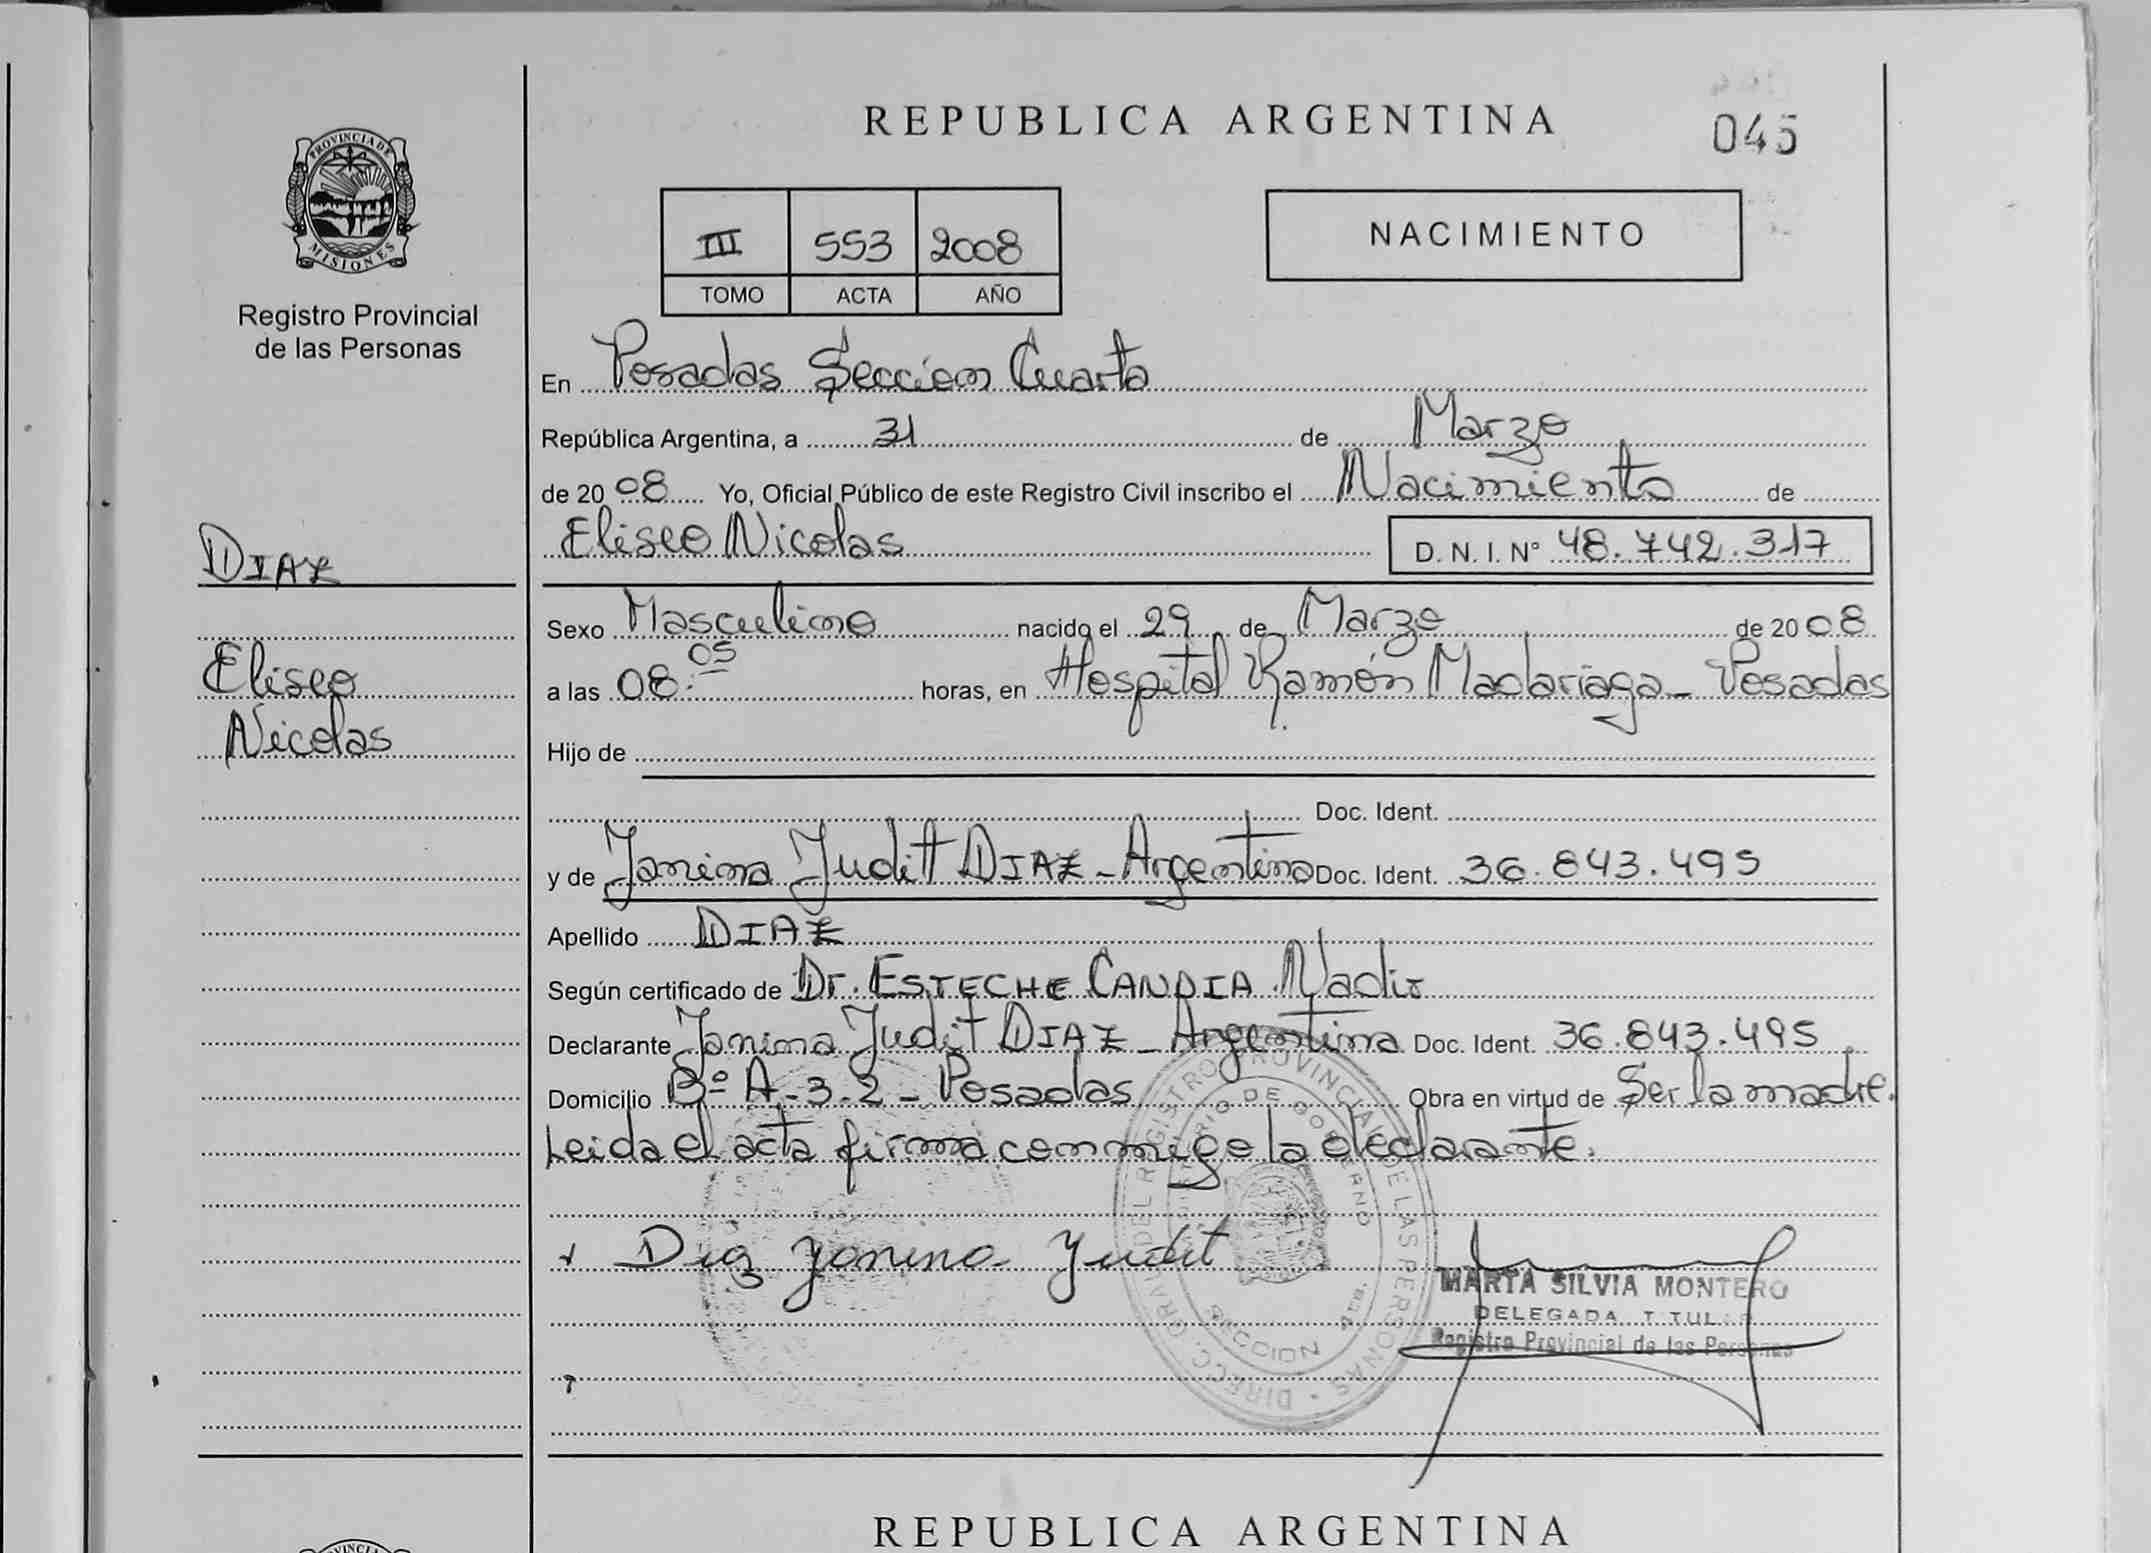 REPUBLICA ARGENTINA
045
PROVINCIA DE
MISIONES
Registro Provincial
de las Personas
III 553 2008
TOMO ACTA AÑO
NACIMIENTO
En Posadas Seccion Cuarta
República Argentina, a 31 de Marzo
de 20 08 Yo, Oficial Público de este Registro Civil inscribo el Nacimiento de
Eliseo Nicolas D. N. I. N° 48.742.317
DIAZ
Eliseo
Nicolas
Sexo Masculino nacido el 29 de Marzo de 20 08
a las 08:05 horas, en Hospital Ramón Madariaga - Posadas
Hijo de
Doc. Ident.
y de Janina Judit DIAZ - Argentina Doc. Ident. 36.843.495
Apellido DIAZ
Según certificado de Dr. ESTECHE CANDIA Nadir
Declarante Janina Judit DIAZ - Argentina Doc. Ident. 36.843.495
Domicilio Bº A-3-2 - Posadas Obra en virtud de Ser la madre.
Leida el acta firma conmigo la declarante.
Diaz Janina Judit
DIREC. GRAL. DEL REGISTRO PROVINCIAL DE LAS PERSONAS
DE GOBIERNO
SECCION 4ta.
MARTA SILVIA MONTERO
DELEGADA TITULAR
Registro Provincial de las Personas
REPUBLICA ARGENTINA